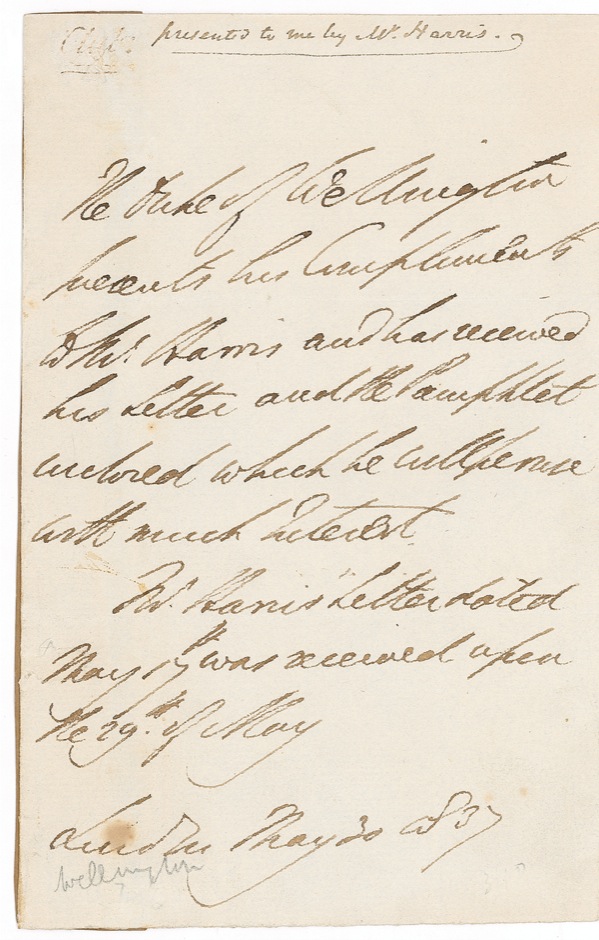 presented to me by Mr. Harris.
The Duke of Wellington
presents his Compliments
to Mr. Harris and has received
his Letter and the Pamphlet
enclosed which he will peruse
with much Interest
Mr. Harris' Letter dated
May 17th was received upon
the 29th of May
London May 30 1837
Wellington